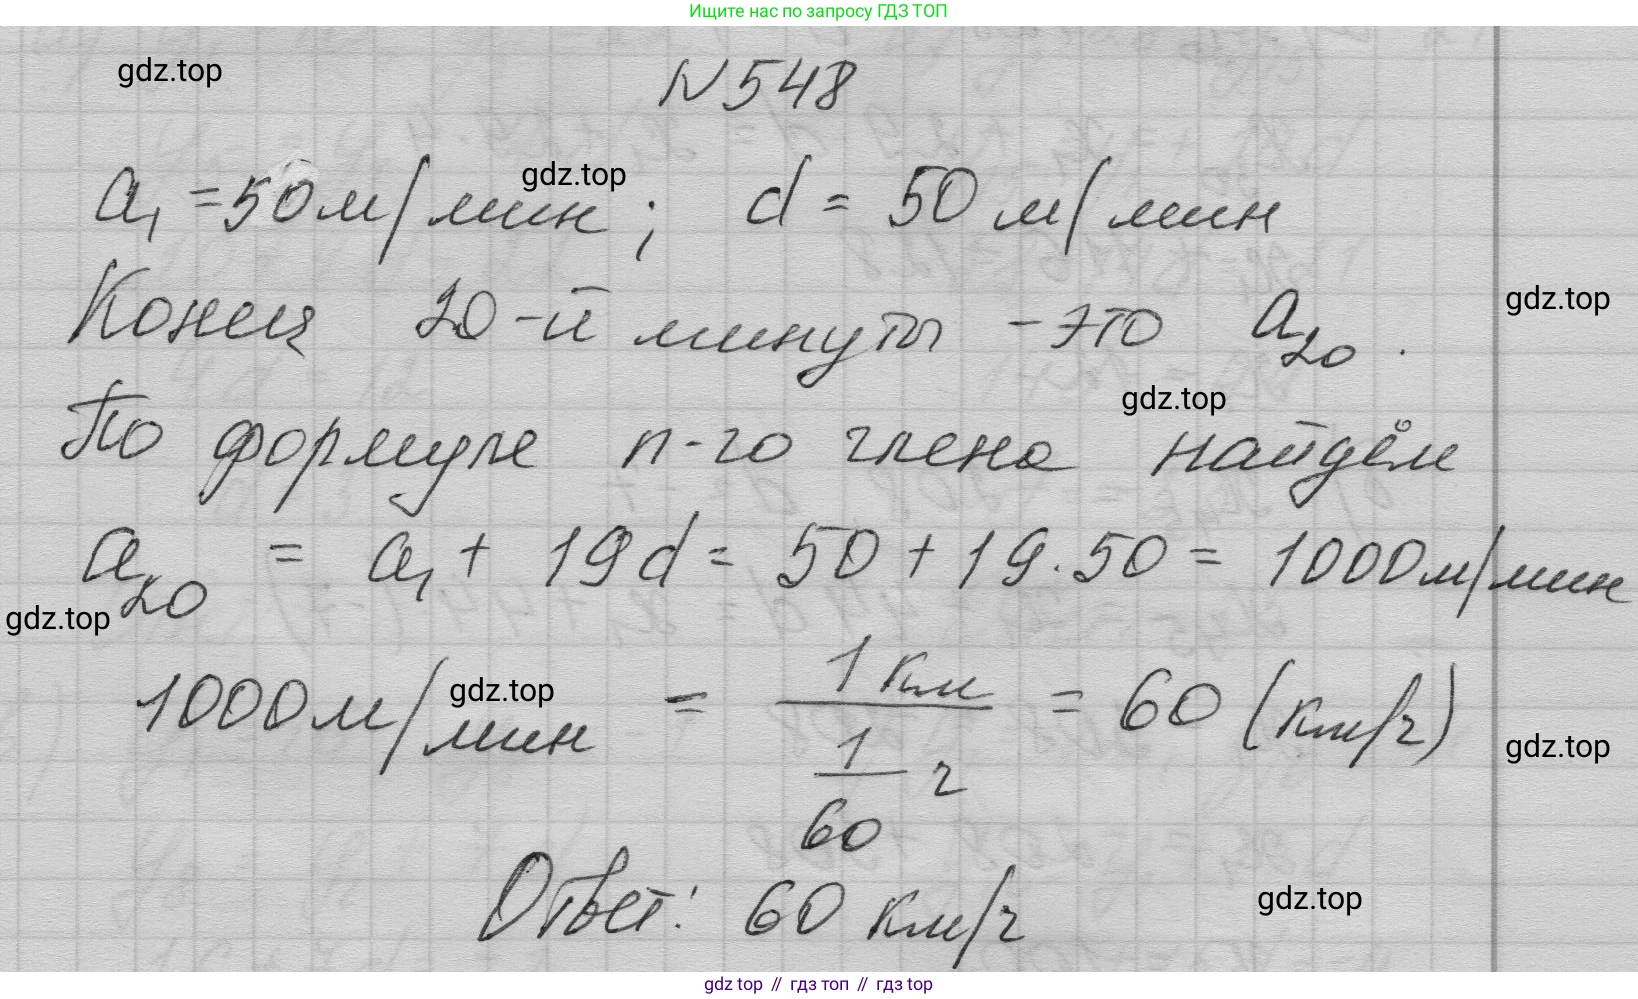 Ищите нас по запросу ГДЗ ТОП
gdz.top
N 548
a₁ = 50 м/мин; d = 50 м/мин
gdz.top
Конец 20-й минуты - это a₂₀.
gdz.top
gdz.top
По формуле n-го члена найдём
a₂₀ = a₁ + 19d = 50 + 19·50 = 1000 м/мин
gdz.top
1000 м/мин = 1 км / (1/60 ч) = 60 (км/ч)
gdz.top
gdz.top
Ответ: 60 км/ч
gdz.top
gdz top // гдз топ // gdz top